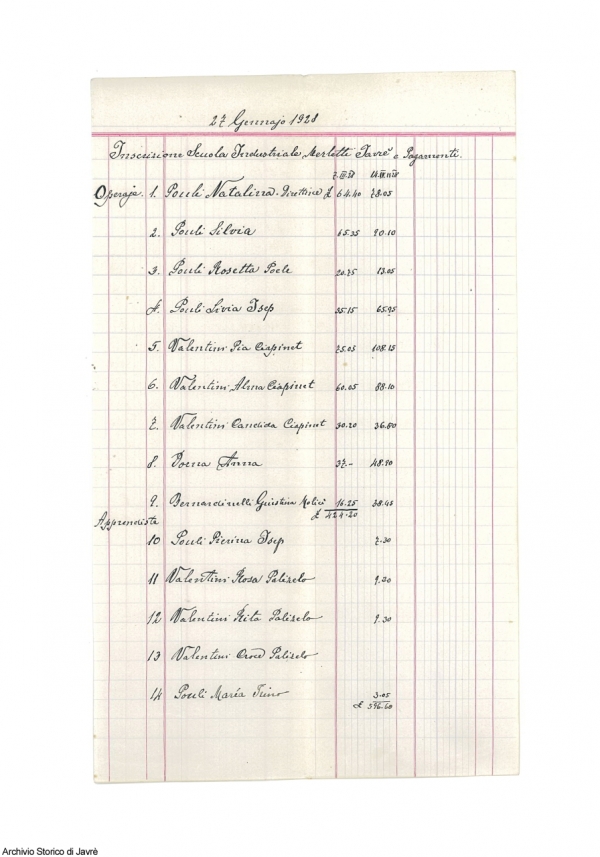 27 Gennajo 1928
Inscrizione Scuola Industriale Merletti Javrè e Pagamenti.
Operaje. 1. Pouli Natalina. Direttrice £ 64.40 78.05
2. Pouli Silvia 65.35 90.10
3. Pouli Rosetta 20.75 13.05
4. Pouli Livia Isep 55.15 65.95
5. Valentini Pia Ciapinet 75.05 108.15
6. Valentini Alma Ciapinet 60.05 88.10
7. Valentini Candida Ciapinet 30.20 36.80
8. Dorna Anna 37.- 48.90
9. Bernardinelli Giustina 16.25 38.45
£ 424.20
Apprendista
10 Pouli Pierina Isep 7.30
11 Valentini Rosa Paliselo 9.30
12 Valentini Rita Paliselo 9.30
13 Valentini Paliselo
14 Pouli Maria 3.05
£ 596.60
Archivio Storico di Javrè